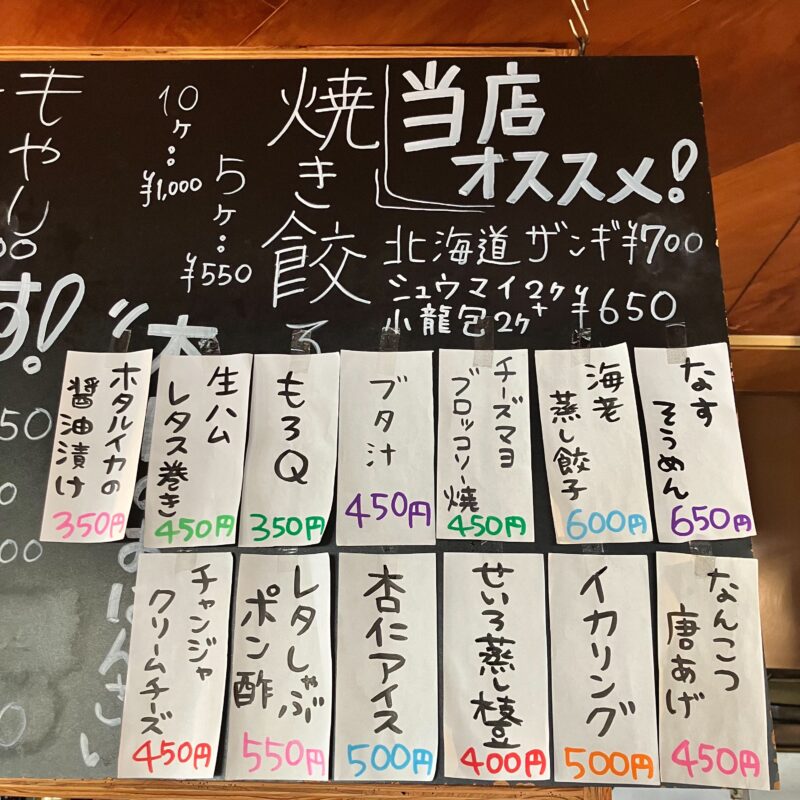 当店
オススメ!
北海道ザンギ¥700
シュウマイ2ヶ+
小龍包2ヶ
¥650
焼き餃
10ヶ:
¥1,000
5ヶ:
¥550
もやし
なす
そうめん
650円
海老
蒸し餃子
600円
チーズマヨ
ブロッコリー焼
450円
ブタ汁
450円
もろQ
350円
生ハム
レタス巻き
450円
ホタルイカの
醤油漬け
350円
なんこつ
唐あげ
450円
イカリング
500円
せいろ蒸し枝豆
400円
杏仁アイス
500円
レタしゃぶ
ポン酢
550円
チャンジャ
クリームチーズ
450円